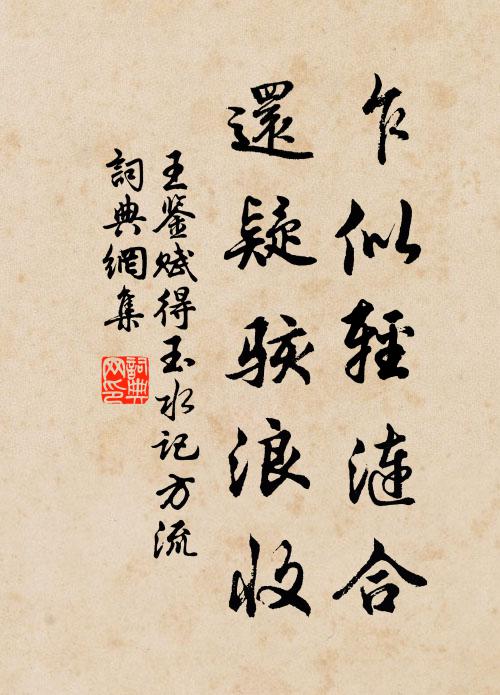 乍似輕漣合
還疑駭浪收
王鉴赋得玉水记方流
詞典網集
詞典
网印